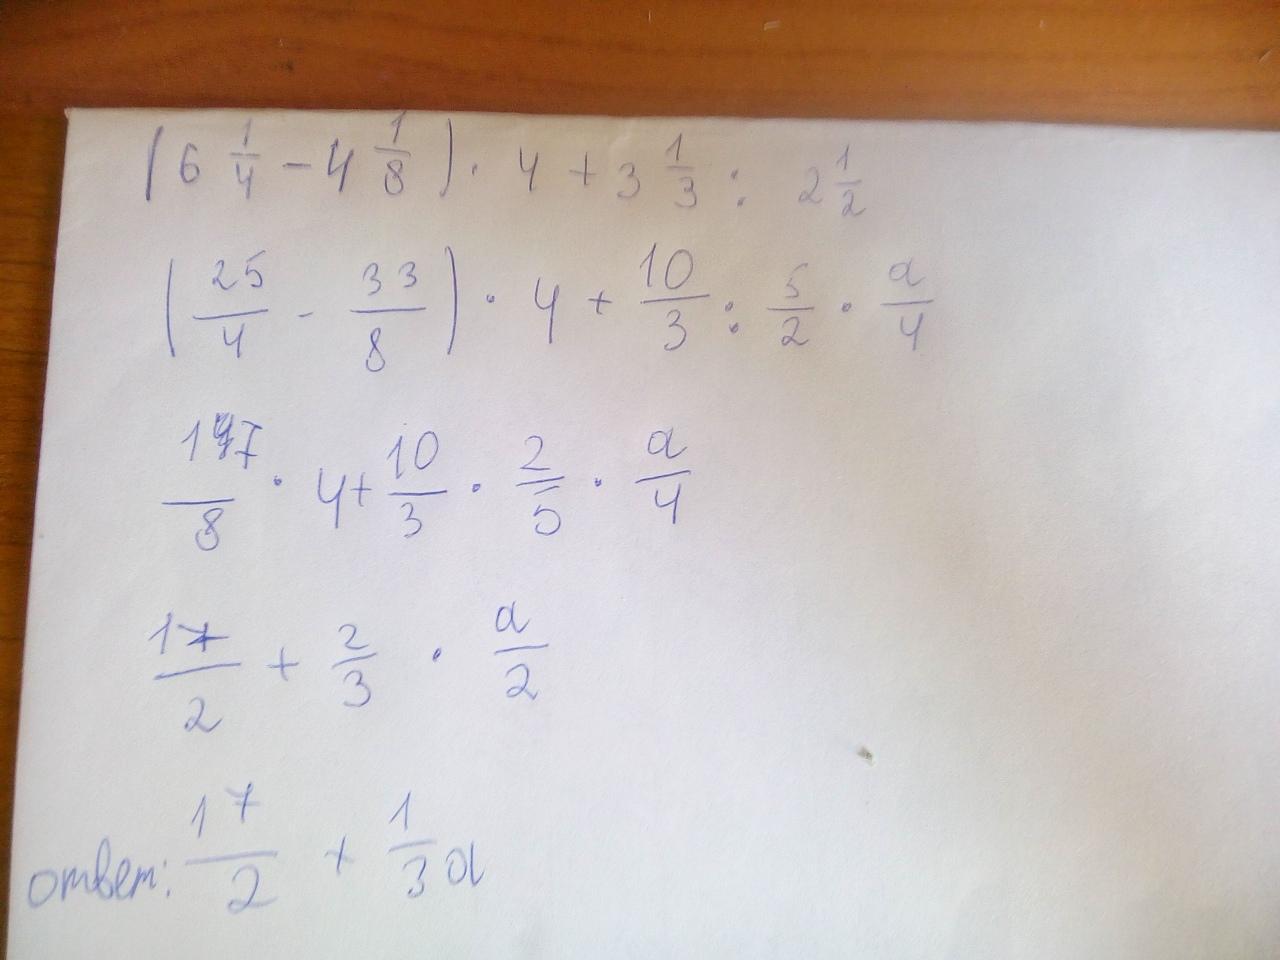 (6 1/4 - 4 1/8) · 4 + 3 1/3 : 2 1/2
(25/4 - 33/8) · 4 + 10/3 : 5/2 · a/4
17/8 · 4 + 10/3 · 2/5 · a/4
17/2 + 2/3 · a/2
ответ: 17/2 + 1/3 a